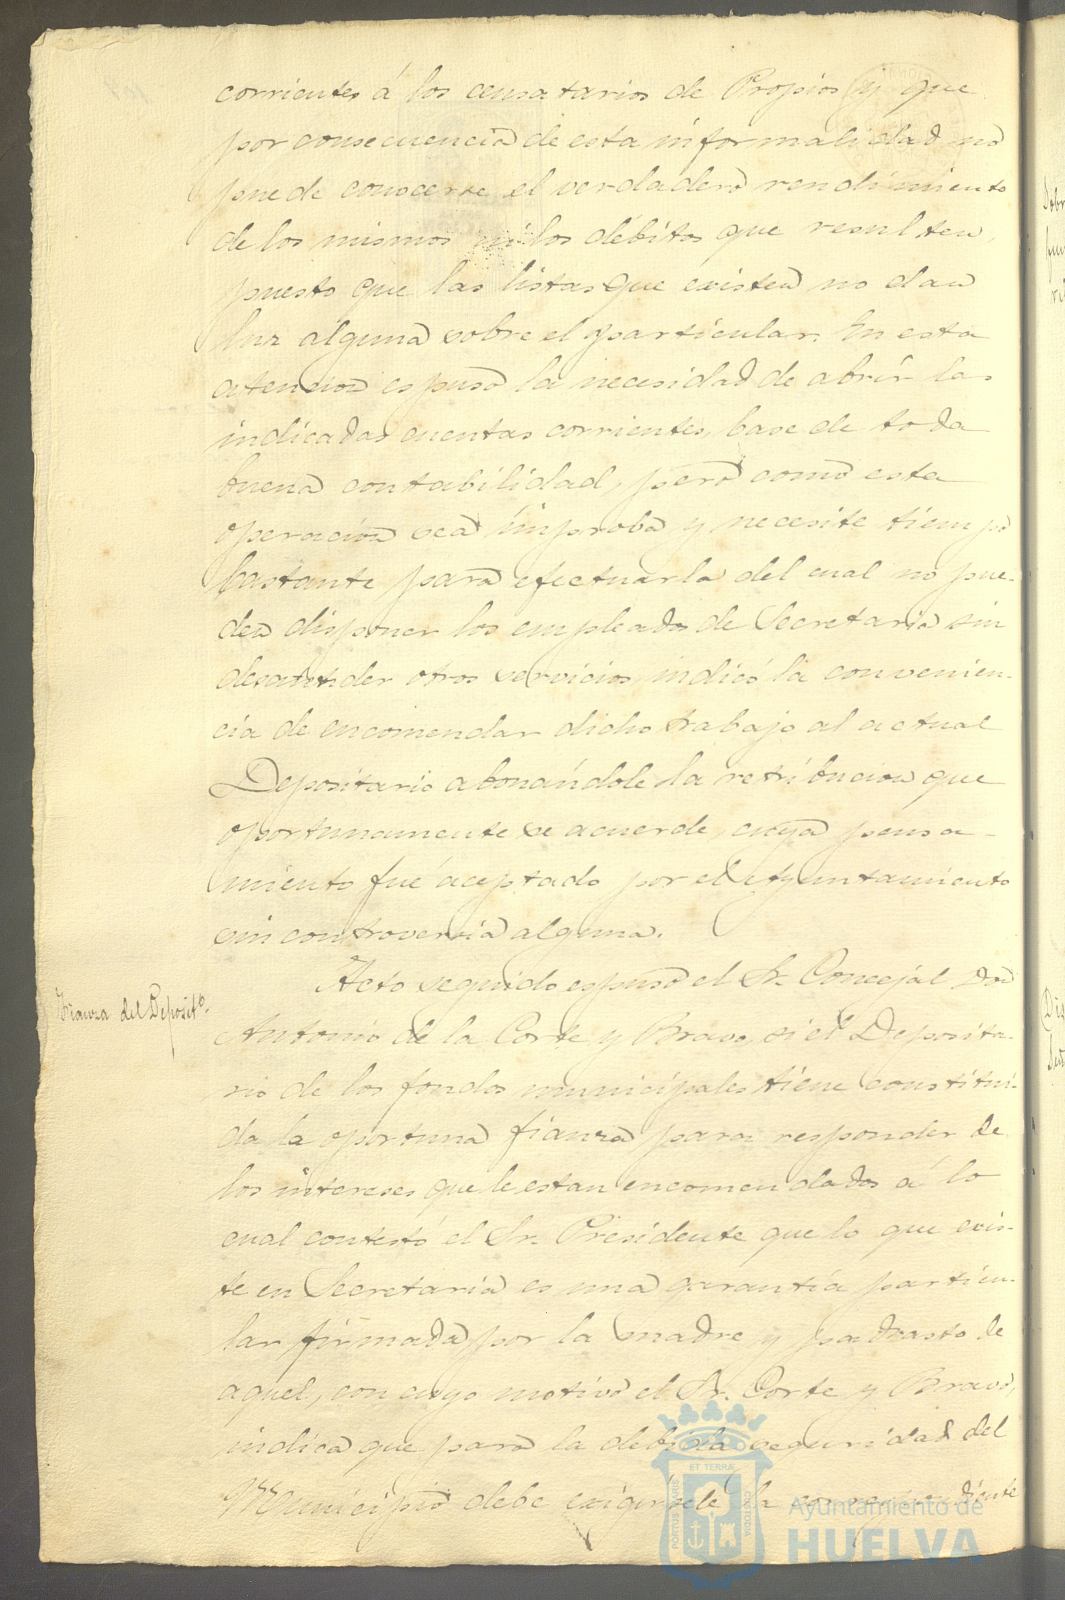 corrientes á los censatarios de Propios y que
por consecuencia de esta informalidad no
puede conocerse el verdadero rendimiento
de los mismos ni los débitos que resulten,
puesto que las listas que existen no dan
luz alguna sobre el particular. En esta
atencion espuso la necesidad de abrir las
indicadas cuentas corrientes, base de toda
buena contabilidad, pero como esta
operacion sea improba y necesite tiempo
bastante para efectuarla del cual no pue-
den disponer los empleados de Secretaria sin
desatender otros servicios, indicó la convenien-
cia de encomendar dicho trabajo al actual
Depositario abonándole la retribucion que
oportunamente se acuerde, cuyo pensa-
miento fué aceptado por el Ayuntamiento
sin controversia alguna.
Fianza del Deposit.o
Acto seguido espuso el Sr. Concejal Don
Antonio de la Corte y Bravo, si el Deposita-
rio de los fondos municipales tiene constitui-
da la oportuna fianza para responder de
los intereses que le estan encomendados á lo
cual contestó el Sr. Presidente que lo que exis-
te en Secretaria es una garantía particu-
lar firmada por la madre y padrasto de
aquel, con cuyo motivo el Sr. Corte y Bravo,
indica que para la debida seguridad del
Municipio debe exigirsele la correspondiente
ET TERRÆ
PORTUS MARIS
CUSTODIA
Ayuntamiento de
HUELVA